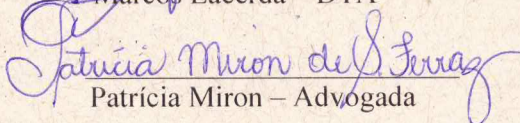 Marcos Lacerda – DTA
Patrícia Miron de S. Ferraz
Patrícia Miron – Advogada